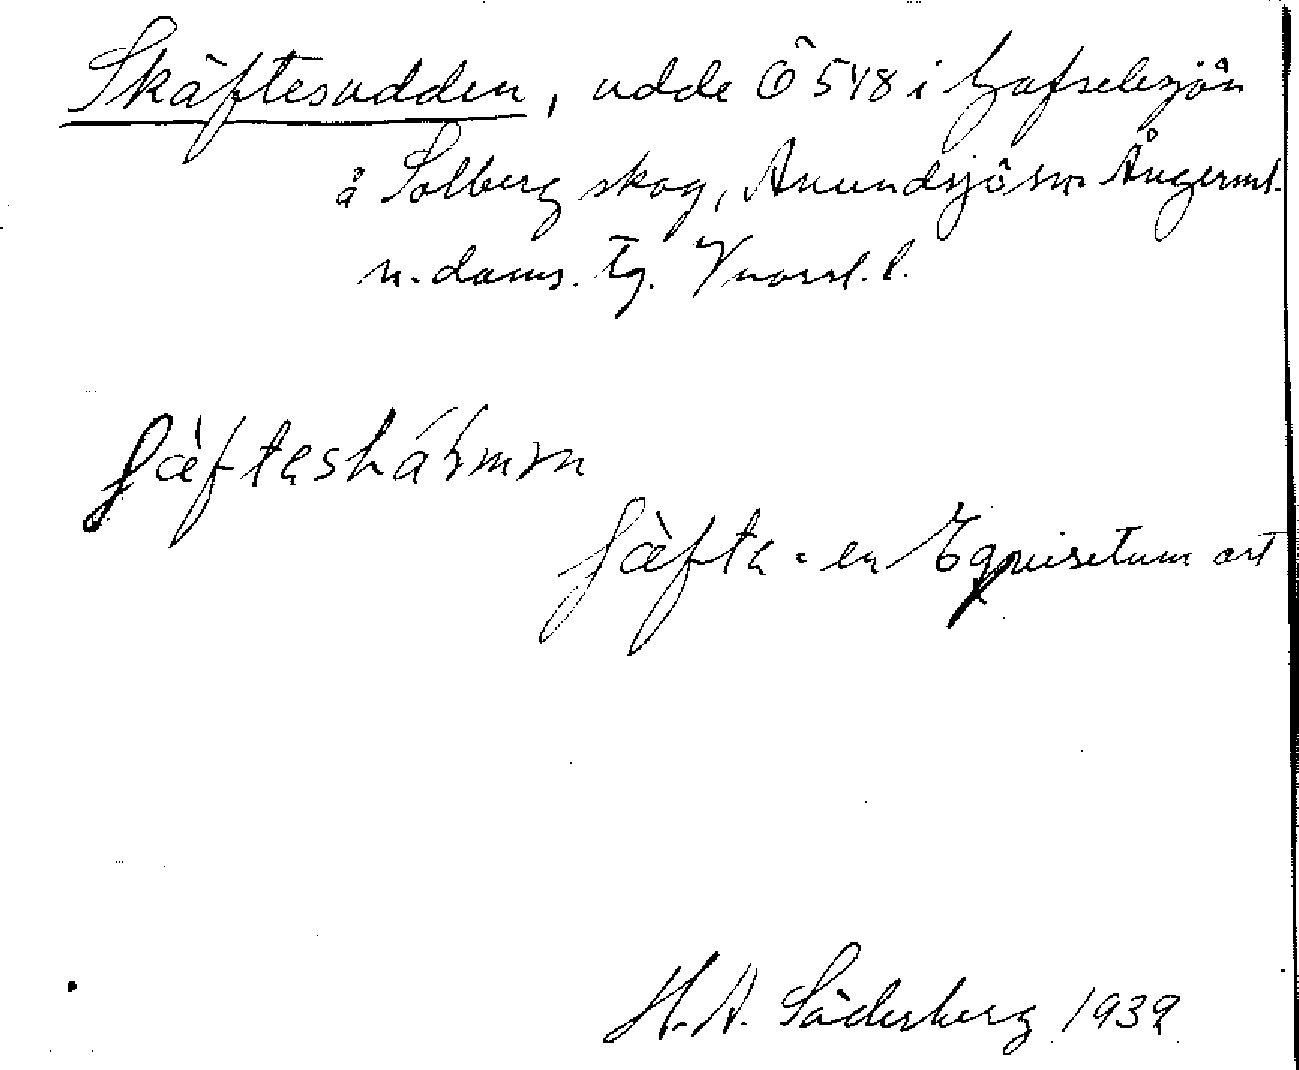 Skäftesudden, udde Ö 548 i Hafselesjön
å Solberg skog, Anundsjö sn Ångerml.
n. dans. Tg.
ʃæ̀ftes
ʃæ̀fta = en Equisetum art
H. A. Söderberg 1939